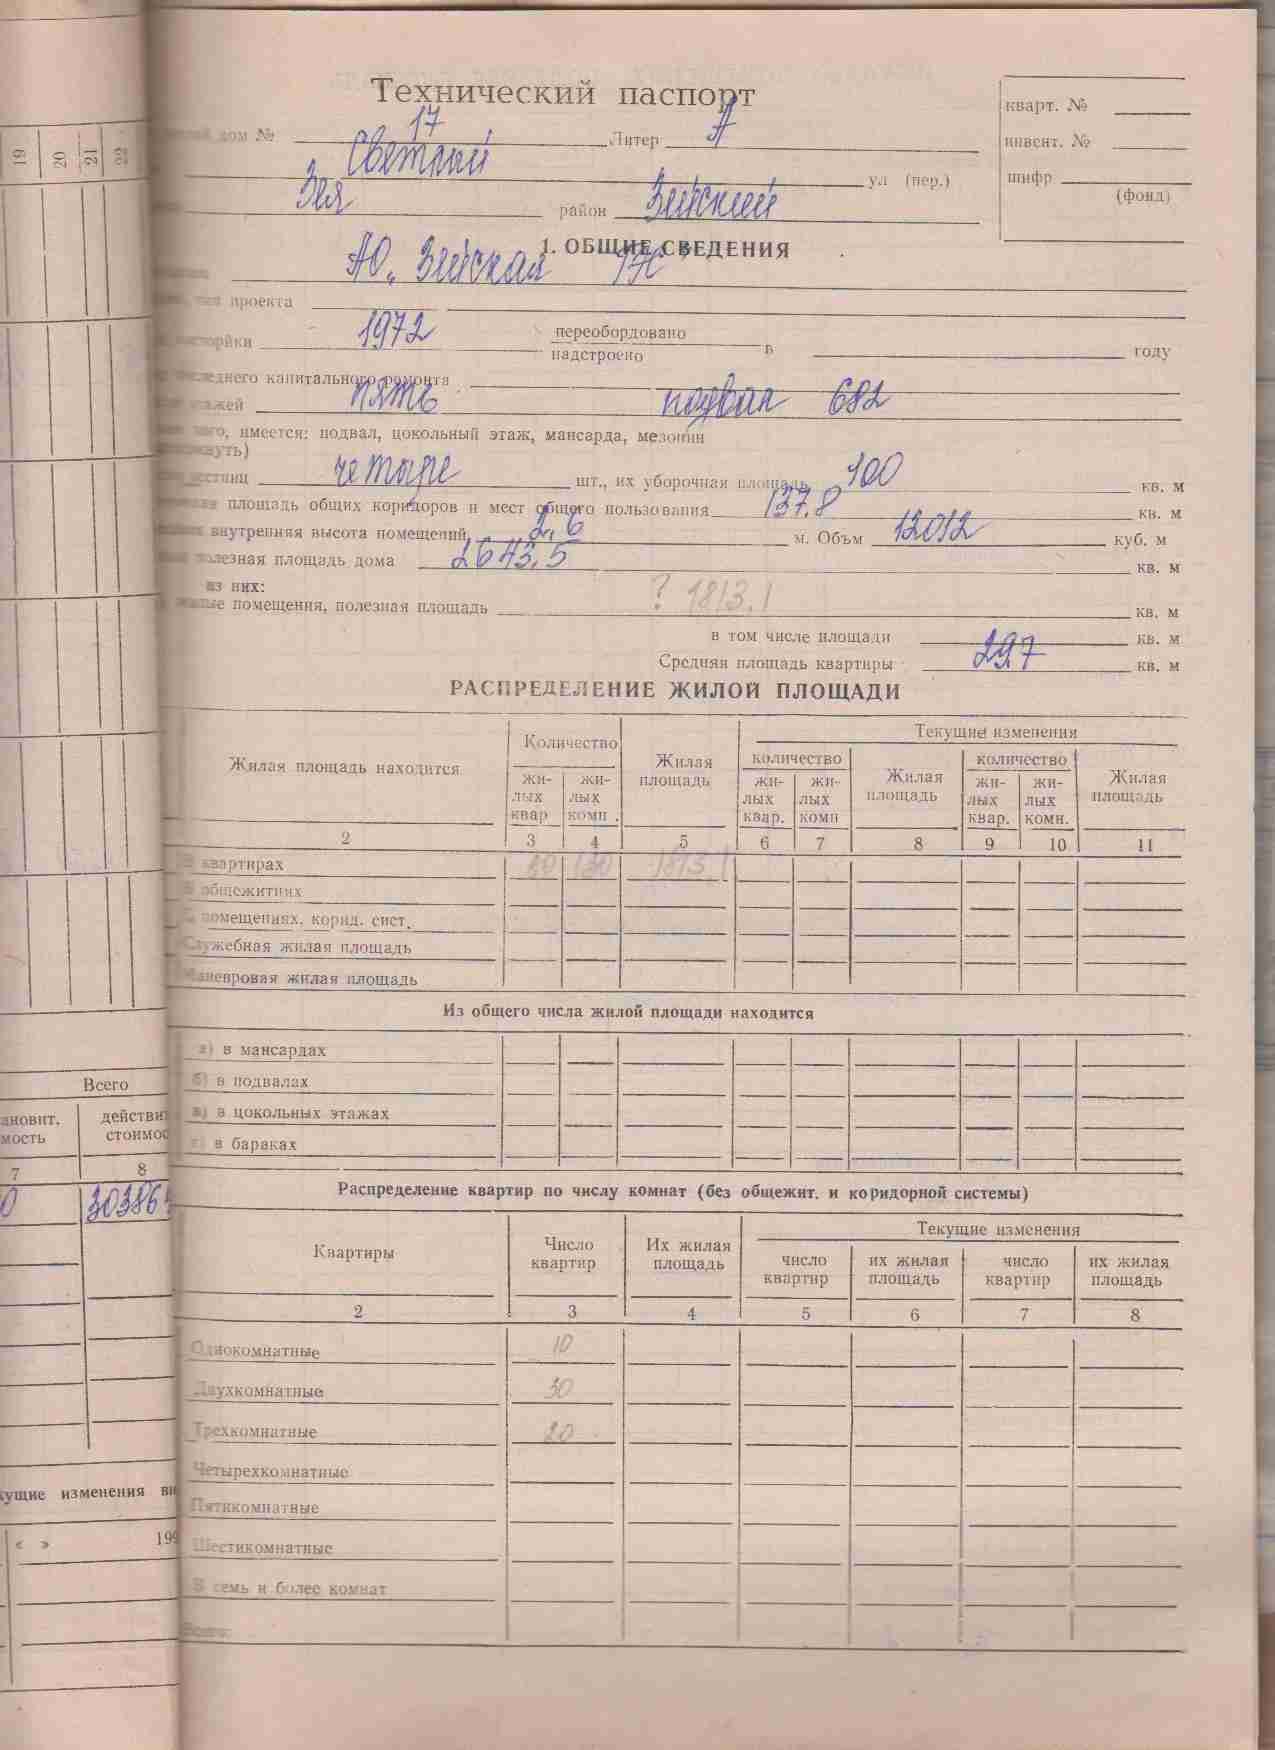 Технический паспорт
дом № 17 Литер А
кварт. №
инвент. №
шифр
(фонд)
Светлый ул (пер.)
Зея район Зейский
1. ОБЩИЕ СВЕДЕНИЯ
АО „Зейская
проекта
1972 переобордовано
надстроено в году
последнего капитального ремонта
этажей пять подвал 682
того, имеется: подвал, цокольный этаж, мансарда, мезонин
лестниц четыре шт., их уборочная площадь 100 кв. м
площадь общих коридоров и мест общего пользования 137.8 кв. м
внутренняя высота помещений 2,6 м. Объм 12012 куб. м
полезная площадь дома 2643.5 кв. м
из них:
жилые помещения, полезная площадь ? 1813.1 кв. м
в том числе площади кв. м
Средняя площадь квартиры 29,7 кв. м
РАСПРЕДЕЛЕНИЕ ЖИЛОЙ ПЛОЩАДИ
Жилая площадь находится
Количество
жи-
лых
квар
жи-
лых
комн.
Жилая
площадь
Текущие изменения
количество
жи-
лых
квар.
жи-
лых
комн
Жилая
площадь
количество
жи-
лых
квар.
жи-
лых
комн.
Жилая
площадь
2 3 4 5 6 7 8 9 10 11
В квартирах 130 1813.1
В общежитиях
помещениях. корид. сист.
Служебная жилая площадь
Маневровая жилая площадь
Из общего числа жилой площади находится
а) в мансардах
б) в подвалах
в) в цокольных этажах
г) в бараках
Распределение квартир по числу комнат (без общежит. и коридорной системы)
Квартиры
Число
квартир
Их жилая
площадь
Текущие изменения
число
квартир
их жилая
площадь
число
квартир
их жилая
площадь
2 3 4 5 6 7 8
Однокомнатные 10
Двухкомнатные 30
Трехкомнатные 20
Четырехкомнатные
Пятикомнатные
Шестикомнатные
В семь и более комнат
Всего:
19 20 21 22
Всего
ановит.
мость
действит
стоимос
7 8
0 303864
кущие изменения вн
« » 199